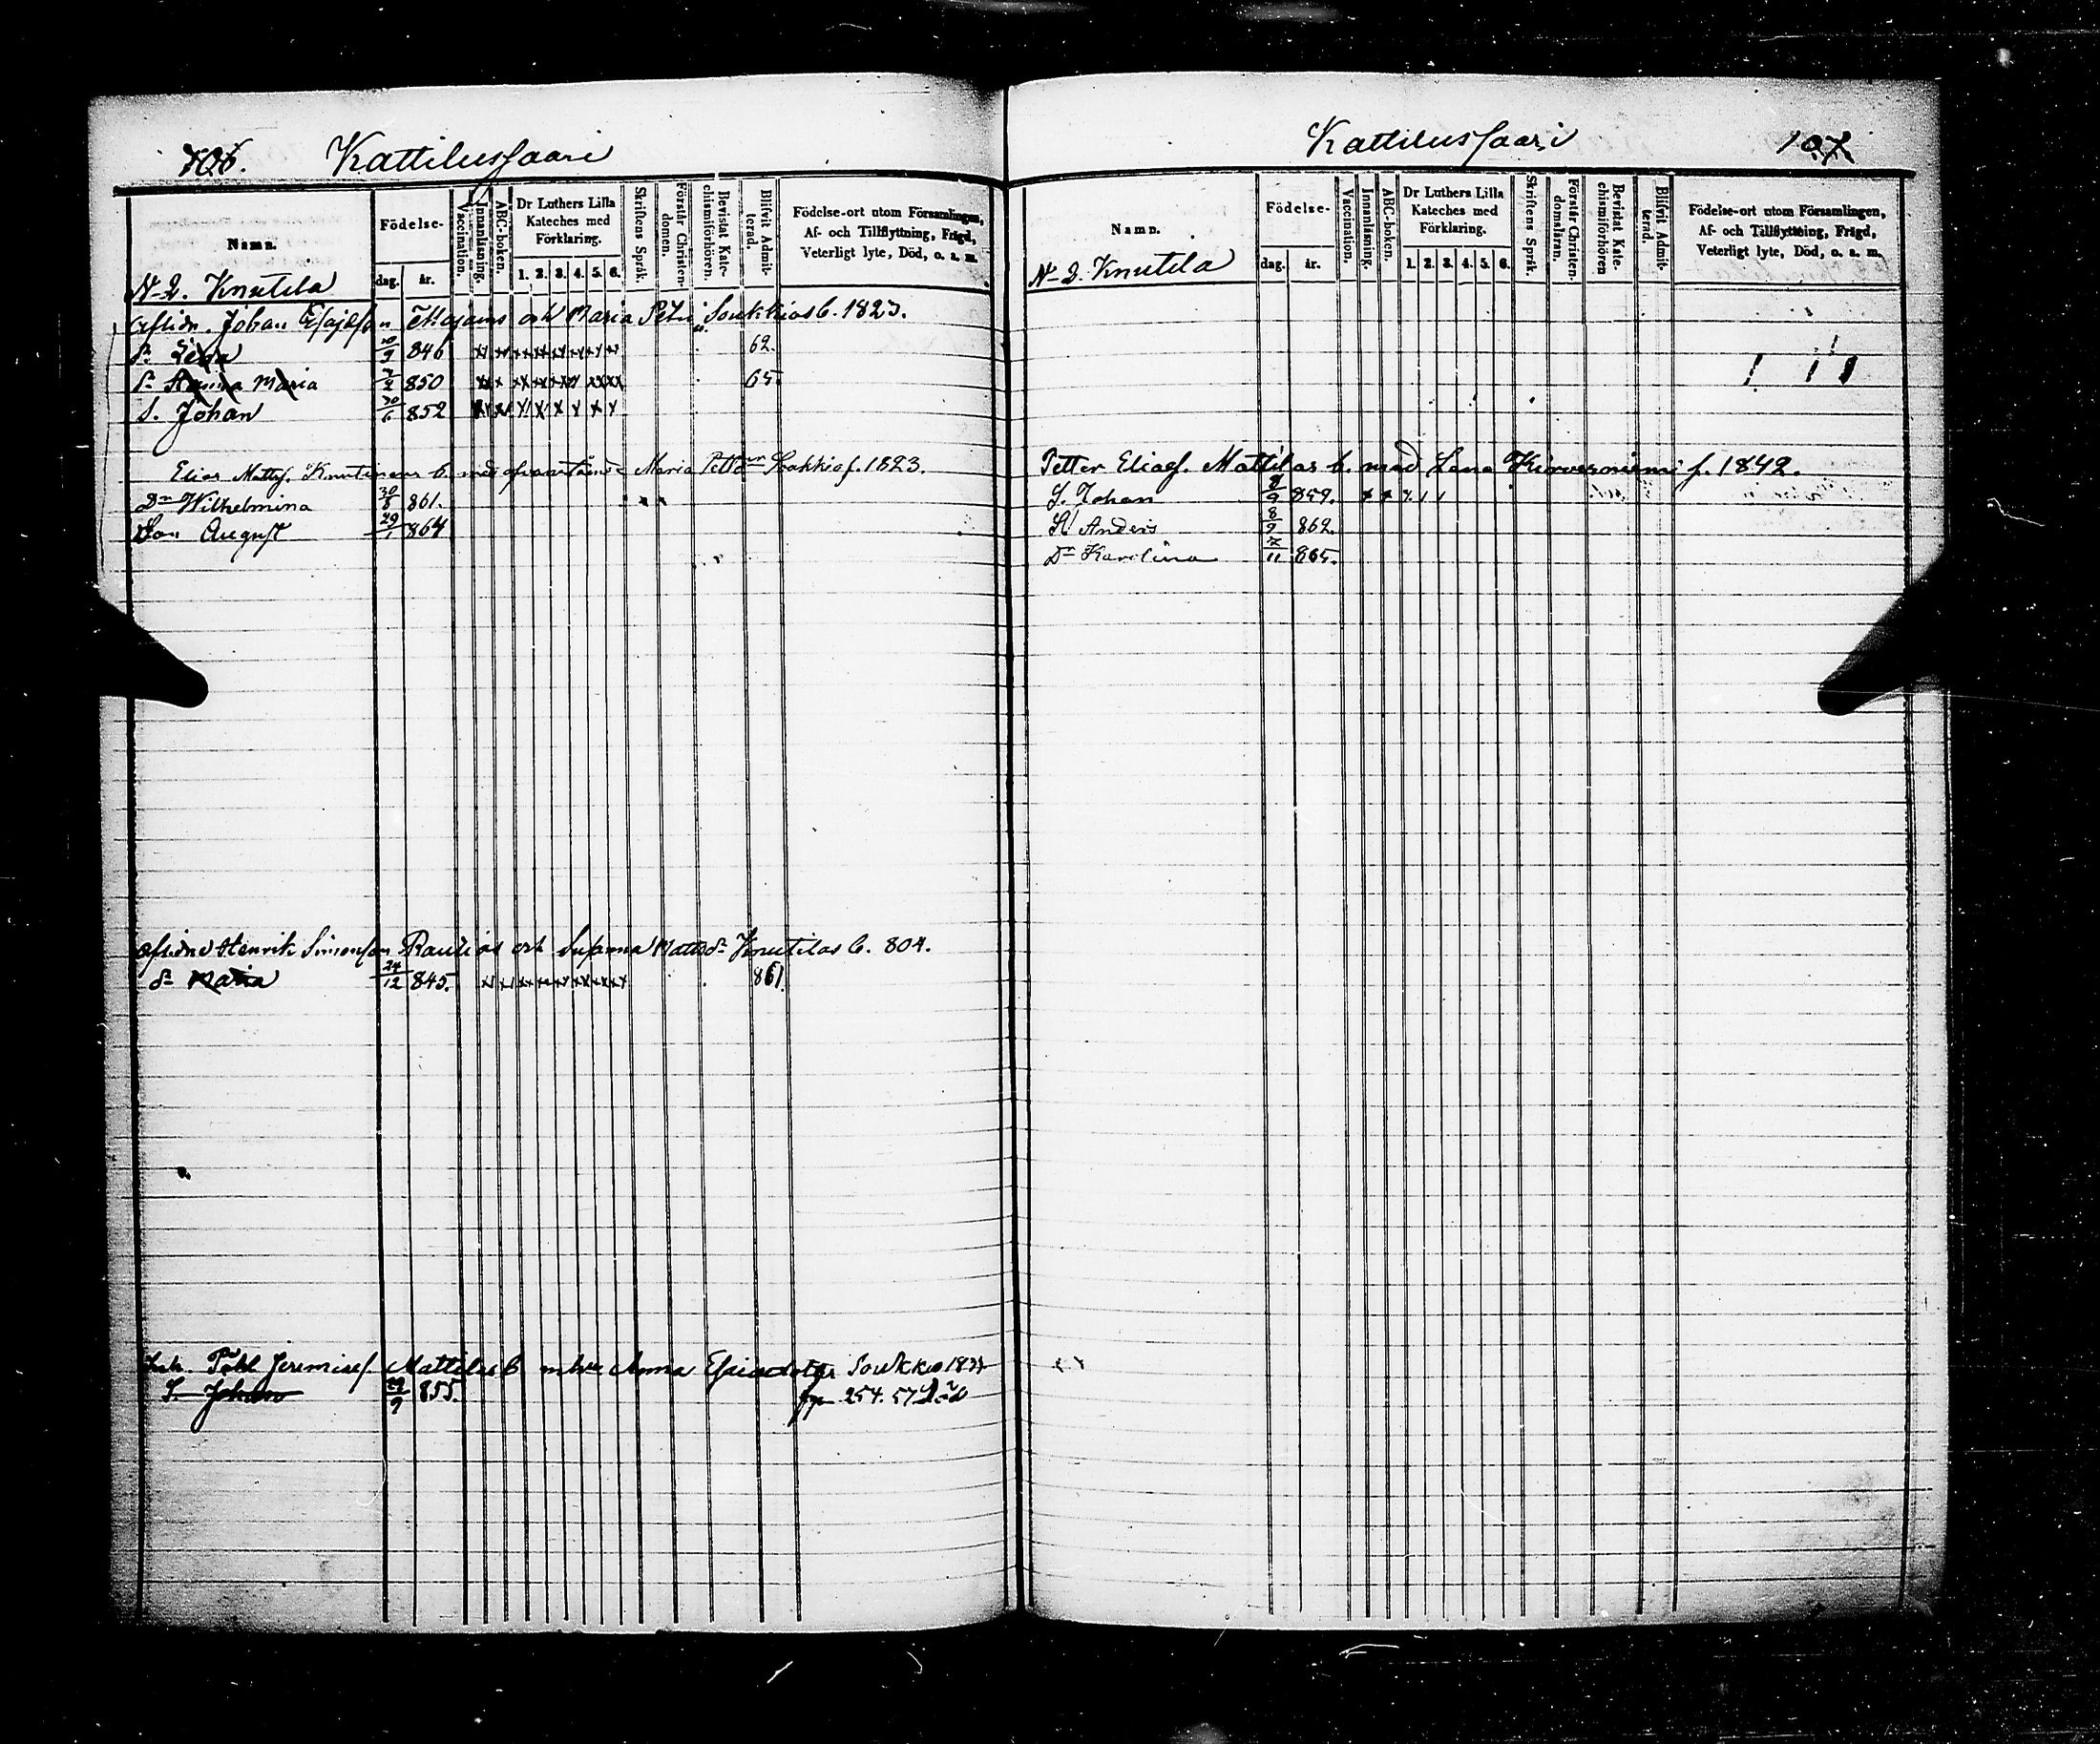 106. Kattilussaari
Namn.
Födelse-
dag. år.
Vaccination.
Innanläsning.
ABC-boken.
Dr Luthers Lilla Kateches med Förklaring.
1. 2. 3. 4. 5. 6.
Skriftens Språk.
Förstår Christendomen.
Bevistat Katechismiförhören.
Blifvit Admitterad.
Födelse-ort utom Församlingen, Af- och Tillflyttning, Frägd, Veterligt lyte, Död, o. s. m.
N-2. Knutila
Aflidn. Johan Esajæson Thojans och Maria Petri Soukkias b. 1823.
D:r Lena 10/9 846 62.
D:r Hanna Maria 850 65
S. Johan 30/6 852
Elias Matts. Knutinens b. med ofvanstående Maria Pettdr Soukkio f. 1823.
Dr Wilhelmina 30/8 861.
Son August 29/1 864
Aflidne Henrik Simonson Rautios och Susanna Mattsdr Knutilas b. 804.
dr Maria 24/12 845. 861.
Inh. Påhl Jeremiæs. Mattilas b. m. hu Anna Esaiædotter Soukko
S. Johan 29/9 855. 254. 57
Kattilussaari 107
Namn.
Födelse-
dag. år.
Vaccination.
Innanläsning.
ABC-boken.
Dr Luthers Lilla Kateches med Förklaring.
1. 2. 3. 4. 5. 6.
Skriftens Språk.
Förstår Christendomsläran.
Bevistat Katechismiförhören
Blifvit Admitterad.
Födelse-ort utom Församlingen, Af- och Tillflyttning, Frägd, Veterligt lyte, Död, o. s. m.
N-2. Knutila
Petter Eliæs. Mattilas b. med Lena Kirvesniemi f. 1842.
S. Johan 8/9 859.
S. Anders 8/9 862.
Dr Karolina 7/11 865.